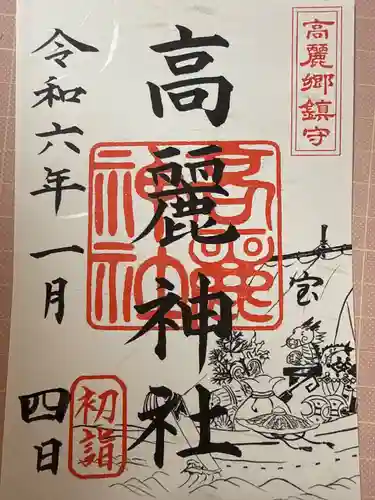 高麗郷鎮守
高麗神社
高麗神社
宝
令和六年一月四日
初詣